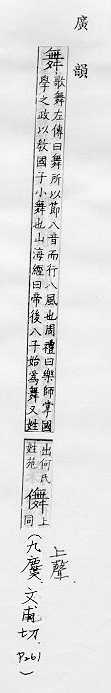 廣韻
舞
歌舞左傳曰舞所以節八音而行八風也周禮曰樂師掌國
學之政以敎國子小舞也山海經曰帝後八子始爲舞又姓
出何氏
姓苑
儛
上同
上聲
(九麌.文甫切.
P261)